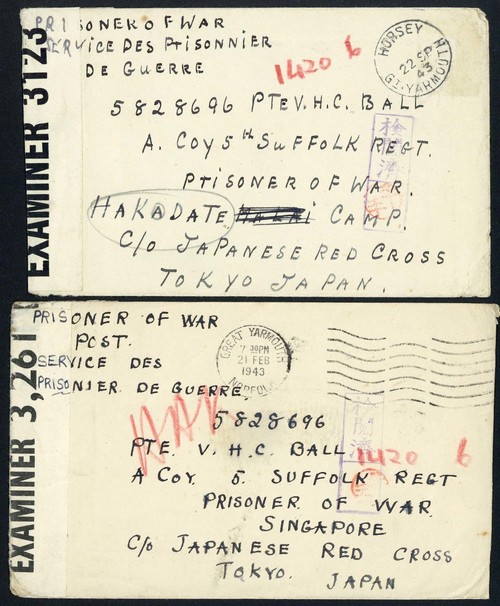 EXAMINER 3123
PRISONER OF WAR
SERVICE DES PRISONNIER
DE GUERRE
1420 6
HORSEY
22 SP
43
GT. YARMOUTH
5828696 PTE V.H.C. BALL
A. COY 5TH SUFFOLK REGT.
PRISONER OF WAR.
HAKADATE CAMP.
C/O JAPANESE RED CROSS
TOKYO JAPAN.
検閲済
EXAMINER 3,261
PRISONER OF WAR
POST.
SERVICE DES
PRISONIER DE GUERRE
GREAT YARMOUTH
21 FEB
1943
NORFOLK
HAK
5828696
PTE. V. H.C. BALL
1420 6
A COY. 5. SUFFOLK REGT
PRISONER OF WAR
SINGAPORE
C/O JAPANESE RED CROSS
TOKYO. JAPAN
検閲済